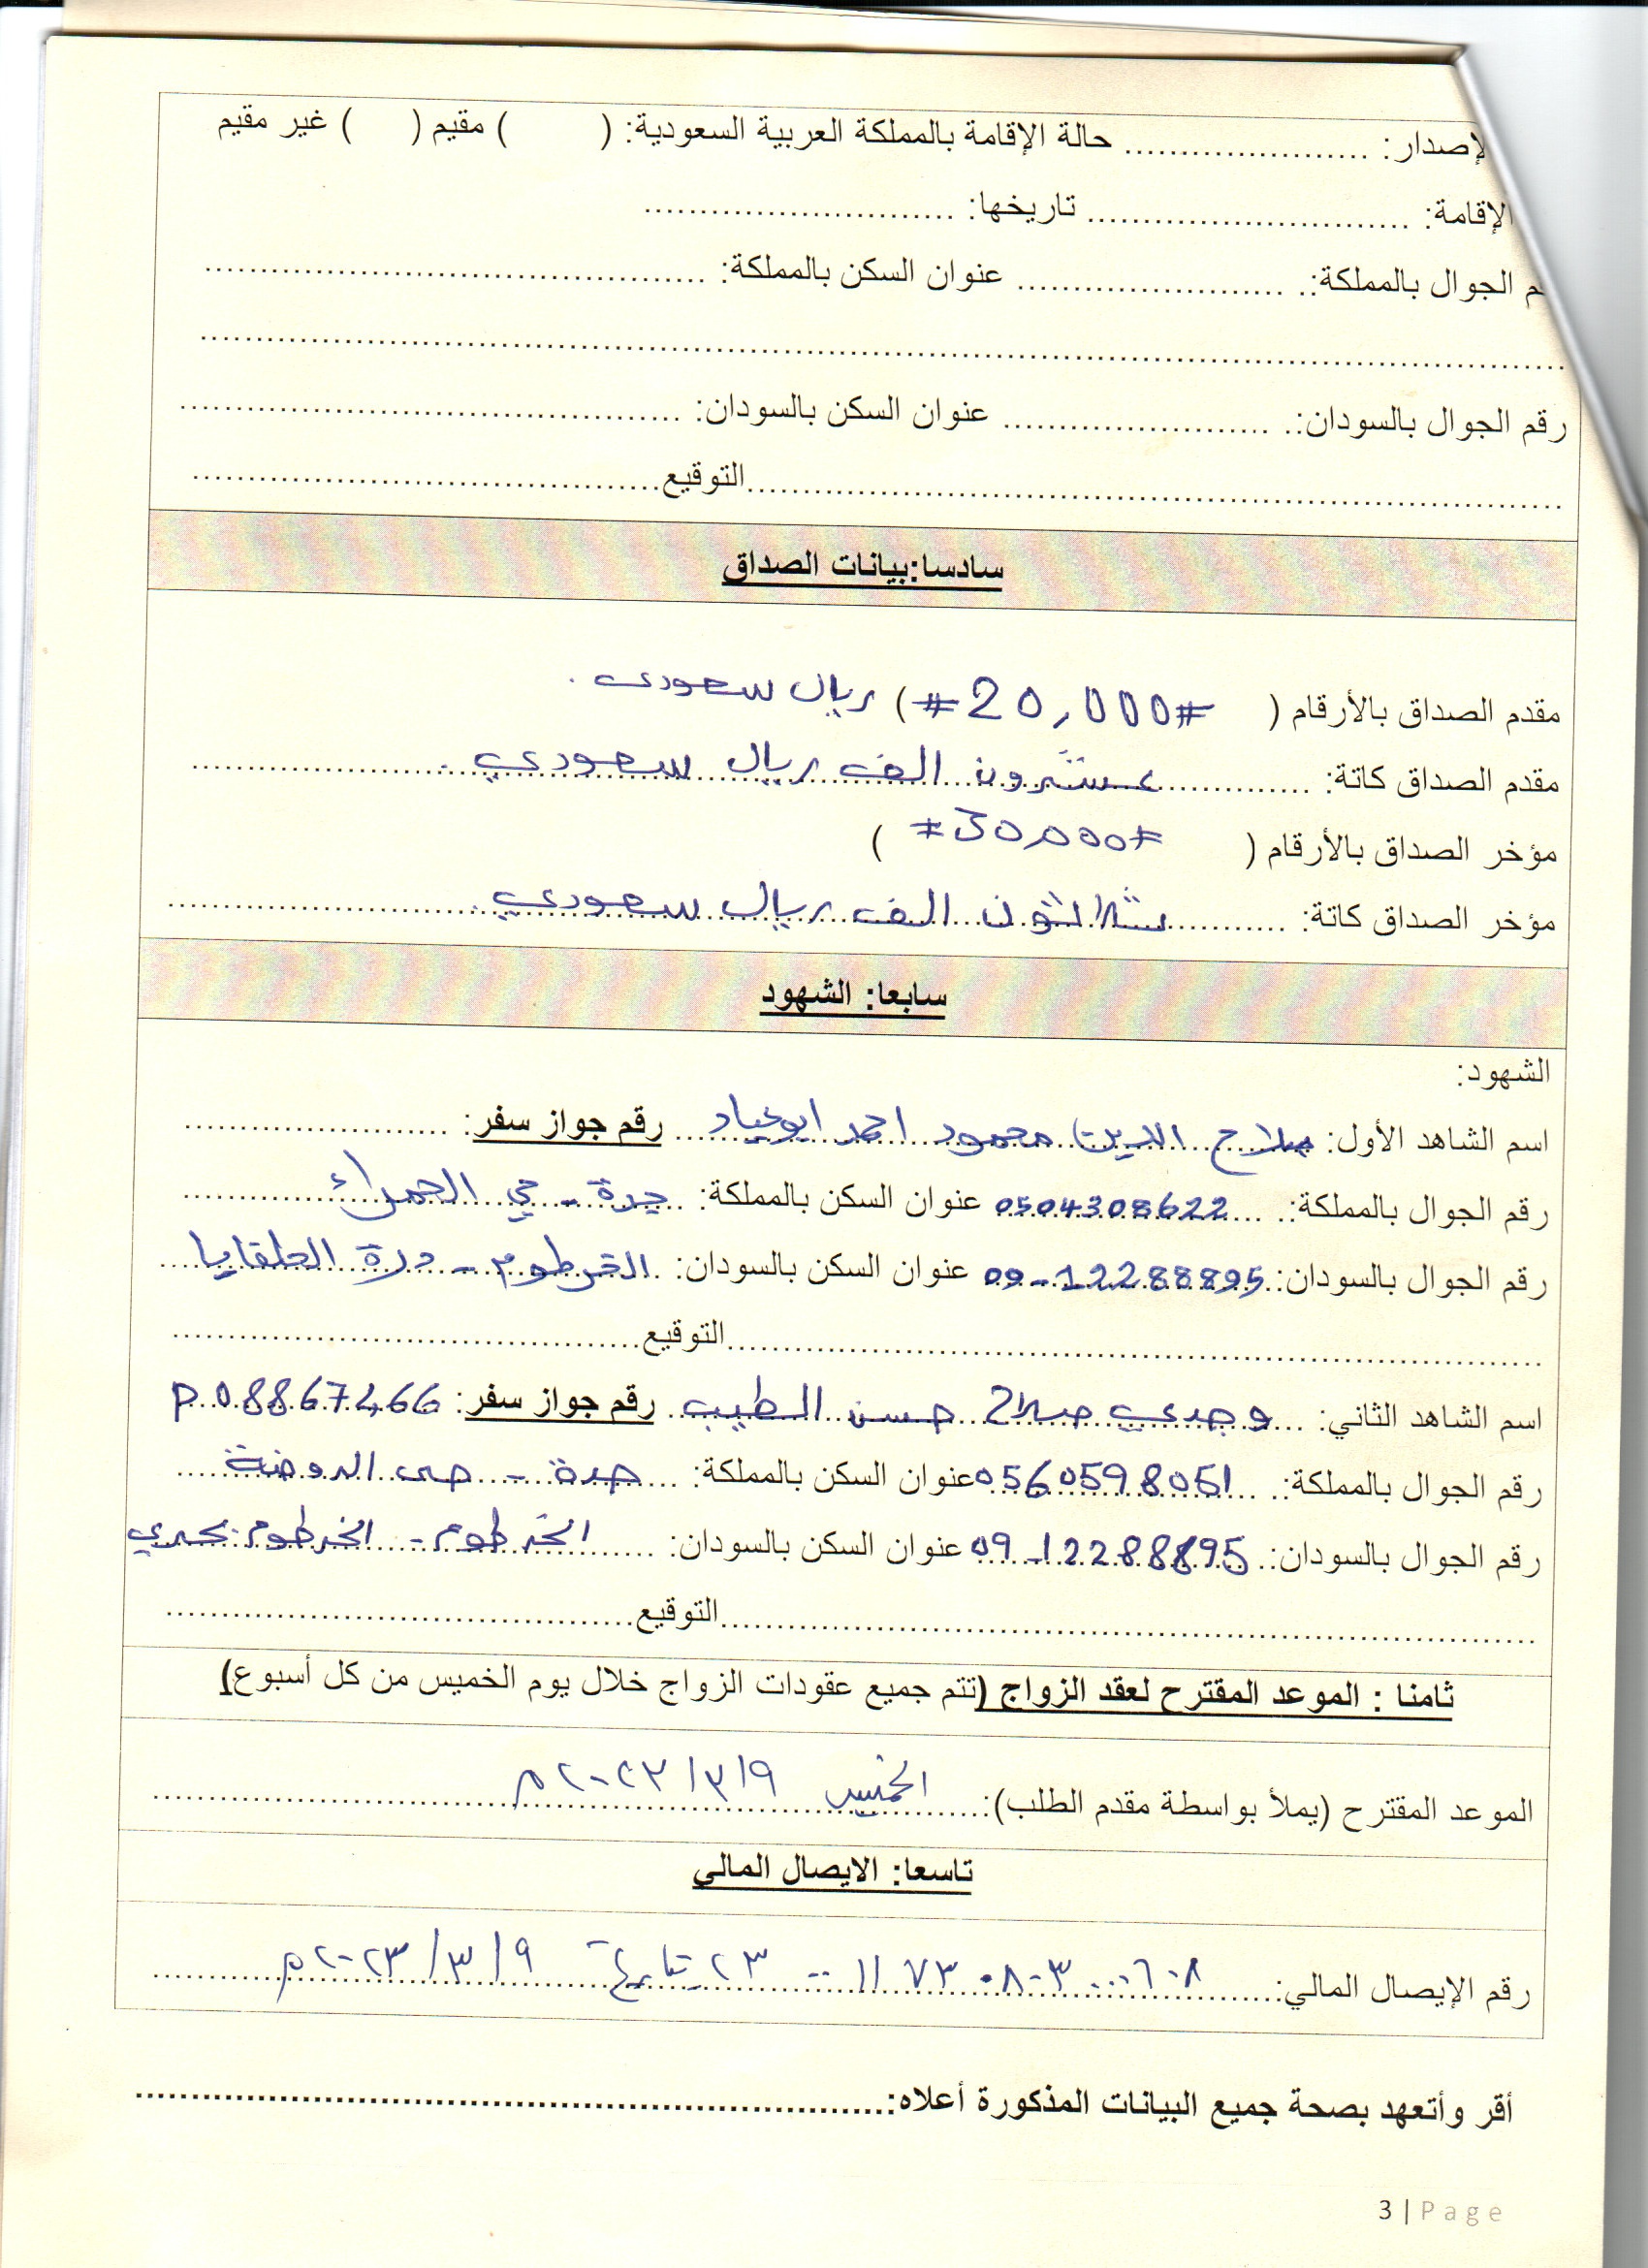 لإصدار: ...................... حالة الإقامة بالمملكة العربية السعودية: ( ) مقيم ( ) غير مقيم
الإقامة: ............................. تاريخها: ............................
م الجوال بالمملكة:. ........................ عنوان السكن بالمملكة: ................................................
رقم الجوال بالسودان:. ........................ عنوان السكن بالسودان: ..............................................
التوقيع..........................................
سادسا:بيانات الصداق
مقدم الصداق بالأرقام ( #20,000# ) ريال سعودى .
مقدم الصداق كاتة: عشرون الف ريال سعودي .
مؤخر الصداق بالأرقام ( #30,000# )
مؤخر الصداق كاتة: ثلاثون الف ريال سعودي .
سابعا: الشهود
الشهود:
اسم الشاهد الأول: صلاح الدين محمود احمد ابوعياد رقم جواز سفر: ........................
رقم الجوال بالمملكة:. 0504308622 عنوان السكن بالمملكة: جدة - حي الحمراء
رقم الجوال بالسودان: 09-12288895 عنوان السكن بالسودان: الخرطوم - درة الحلفايا
التوقيع..........................................
اسم الشاهد الثاني: وجدي صلاح حسن الطيب رقم جواز سفر: P08867466
رقم الجوال بالمملكة:. 0560598051 عنوان السكن بالمملكة: جدة - حى الروضة
رقم الجوال بالسودان:. 09-12288895 عنوان السكن بالسودان: الخرطوم - الخرطوم بحري
التوقيع..........................................
ثامنا : الموعد المقترح لعقد الزواج (تتم جميع عقودات الزواج خلال يوم الخميس من كل أسبوع)
الموعد المقترح (يملأ بواسطة مقدم الطلب): الخميس ٩/٣/٢٠٢٣م
تاسعا: الايصال المالي
رقم الإيصال المالي: بتاريخ ٩/٣/٢٠٢٣م
أقر وأتعهد بصحة جميع البيانات المذكورة أعلاه:..................................................................
3 | Page